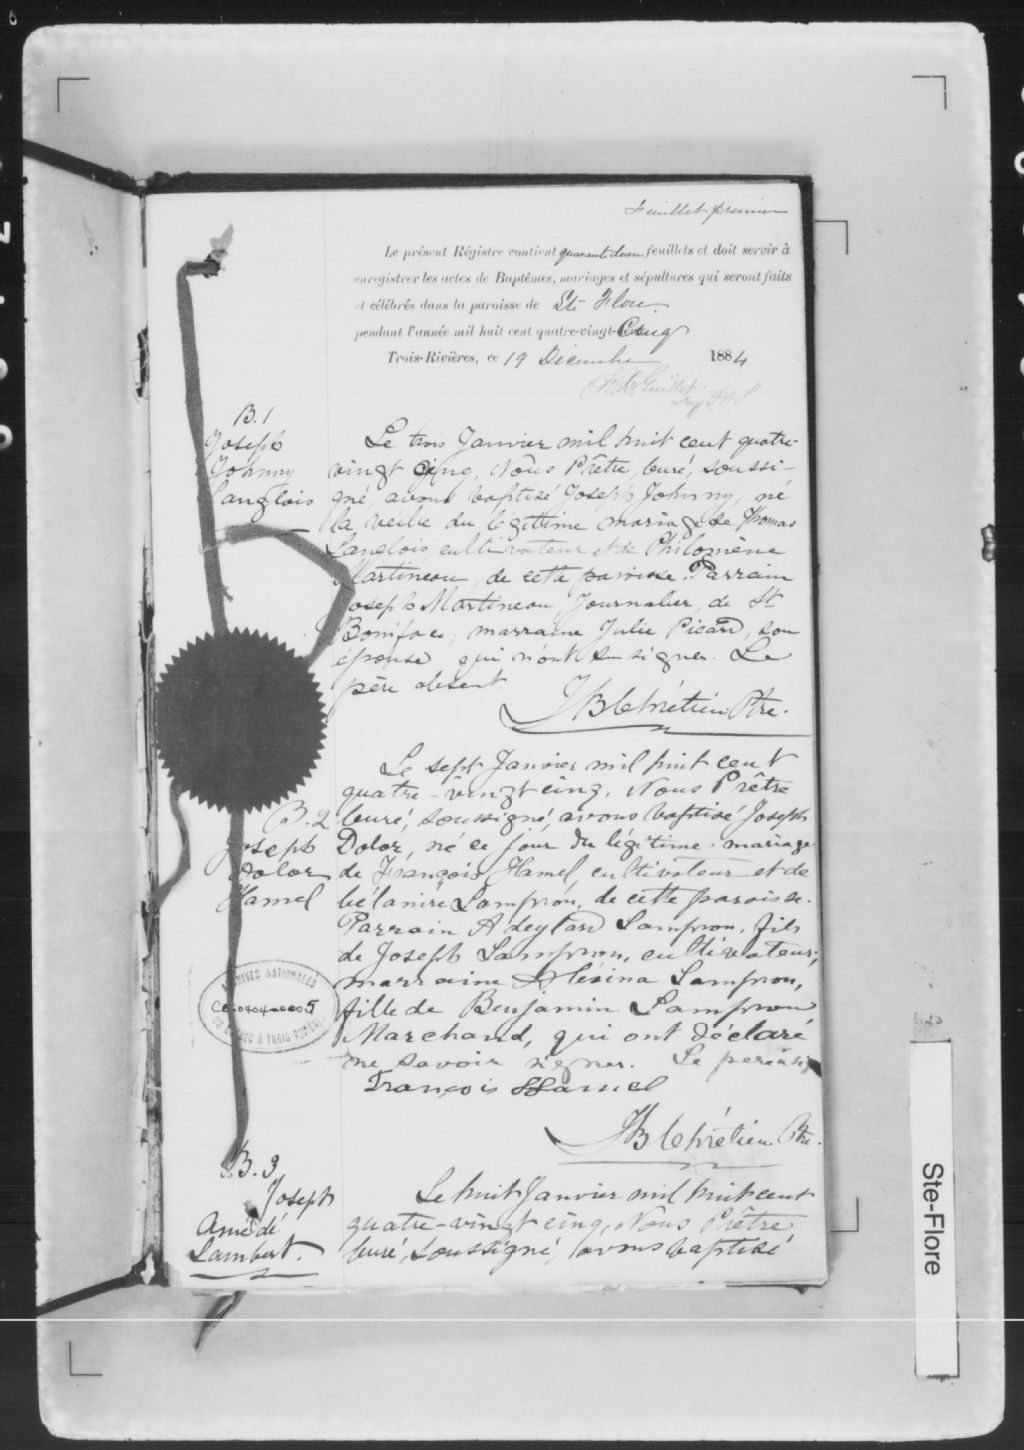 Feuillet premier
Le présent Régistre contient quarante deux feuillets et doit servir à
enregistrer les actes de Baptêmes, mariages et sépultures qui seront faits
et célébrés dans la paroisse de Ste Flore
pendant l'année mil huit cent quatre-vingt-Cinq
Trois-Rivières, ce 19 Décembre 1884
B. 1
Joseph
Johnny
Langlois
Le trois Janvier mil huit cent quatre-
vingt cinq, Nous Prêtre, Curé, soussi-
gné, avons baptisé Joseph Johnny, né
la veille du légitime mariage de Thomas
Langlois cultivateur et de Philomène
Martineau, de cette paroisse. Parrain
Joseph Martineau, Journalier, de St
Boniface; marraine Julie Picard, son
épouse qui n'ont su signer. Le
père absent.
JB Chrétien Ptre.
B. 2
Joseph
Dolor
Hamel
Le sept Janvier mil huit cent
quatre-vingt cinq, Nous Prêtre
Curé, soussigné, avons baptisé Joseph
Dolor, né ce jour du légitime mariage
de François Hamel, cultivateur et de
Célanire Lampron, de cette paroisse.
Parrain Adeylard Lampron, fils
de Joseph Lampron, cultivateur;
marraine Alésina Lampron,
fille de Benjamin Lampron
Marchand, qui ont déclaré
ne savoir signer. Le père a sig
François Hamel
JB Chrétien Ptre.
ARCHIVES NATIONALES
CE-0404-0005
DU QUÉBEC À TROIS-RIVIÈRES
B. 3
Joseph
Amédé
Lambert.
Le huit Janvier mil huit cent
quatre-vingt cinq, Nous Prêtre
Curé, soussigné, avons baptisé
Ste-Flore